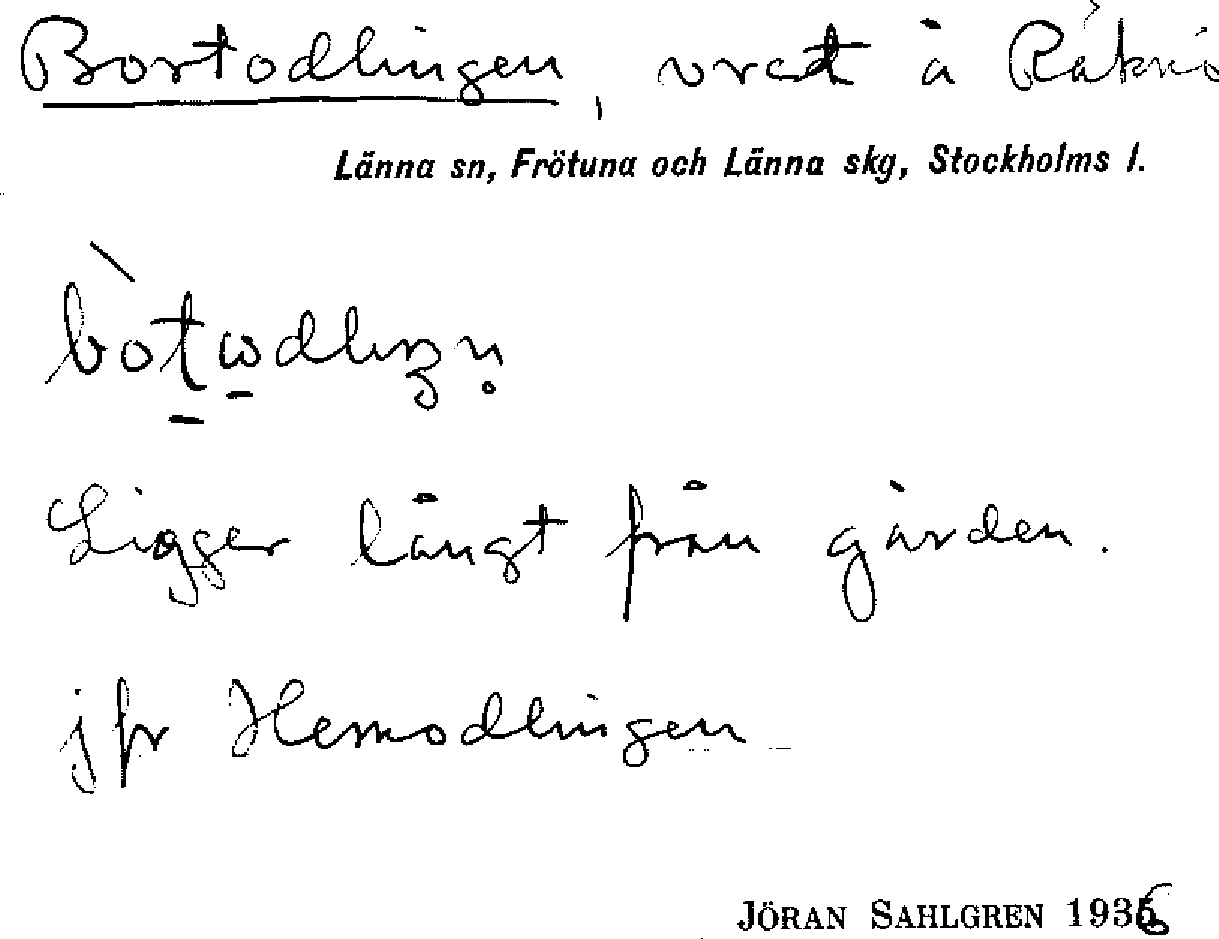 Bortodlingen, vret å Råknö
Länna sn, Frötuna och Länna skg, Stockholms l.
Ligger långt från gården.
jfr Hemodlingen
JÖRAN SAHLGREN 1936